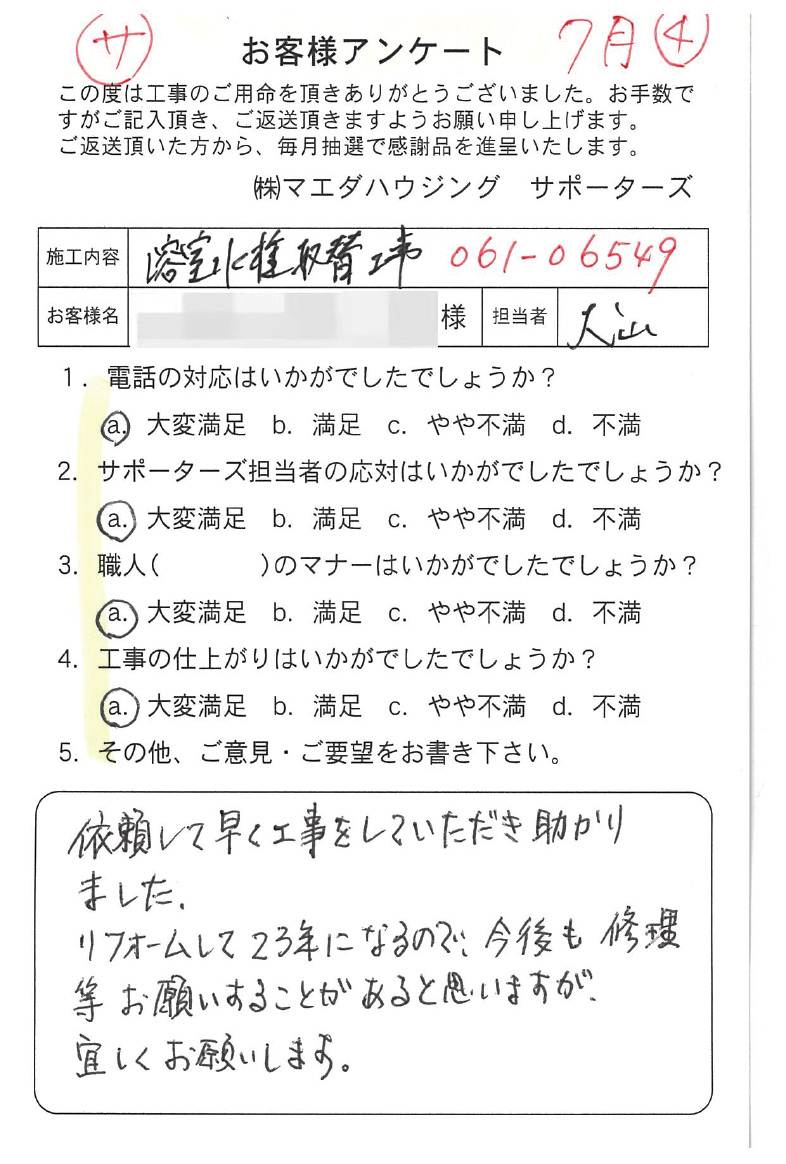 サ お客様アンケート 7月 4
この度は工事のご用命を頂きありがとうございました。お手数で
すがご記入頂き、ご返送頂きますようお願い申し上げます。
ご返送頂いた方から、毎月抽選で感謝品を進呈いたします。
㈱マエダハウジング サポーターズ
施工内容 浴室水栓取替工事 061-06549
お客様名 様 担当者 大山
1. 電話の対応はいかがでしたでしょうか？
a. 大変満足 b. 満足 c. やや不満 d. 不満
2. サポーターズ担当者の応対はいかがでしたでしょうか？
a. 大変満足 b. 満足 c. やや不満 d. 不満
3. 職人( )のマナーはいかがでしたでしょうか？
a. 大変満足 b. 満足 c. やや不満 d. 不満
4. 工事の仕上がりはいかがでしたでしょうか？
a. 大変満足 b. 満足 c. やや不満 d. 不満
5. その他、ご意見・ご要望をお書き下さい。
依頼して早く工事をしていただき助かり
ました。
リフォームして23年になるので、今後も修理
等お願いすることがあると思いますが、
宜しくお願いします。